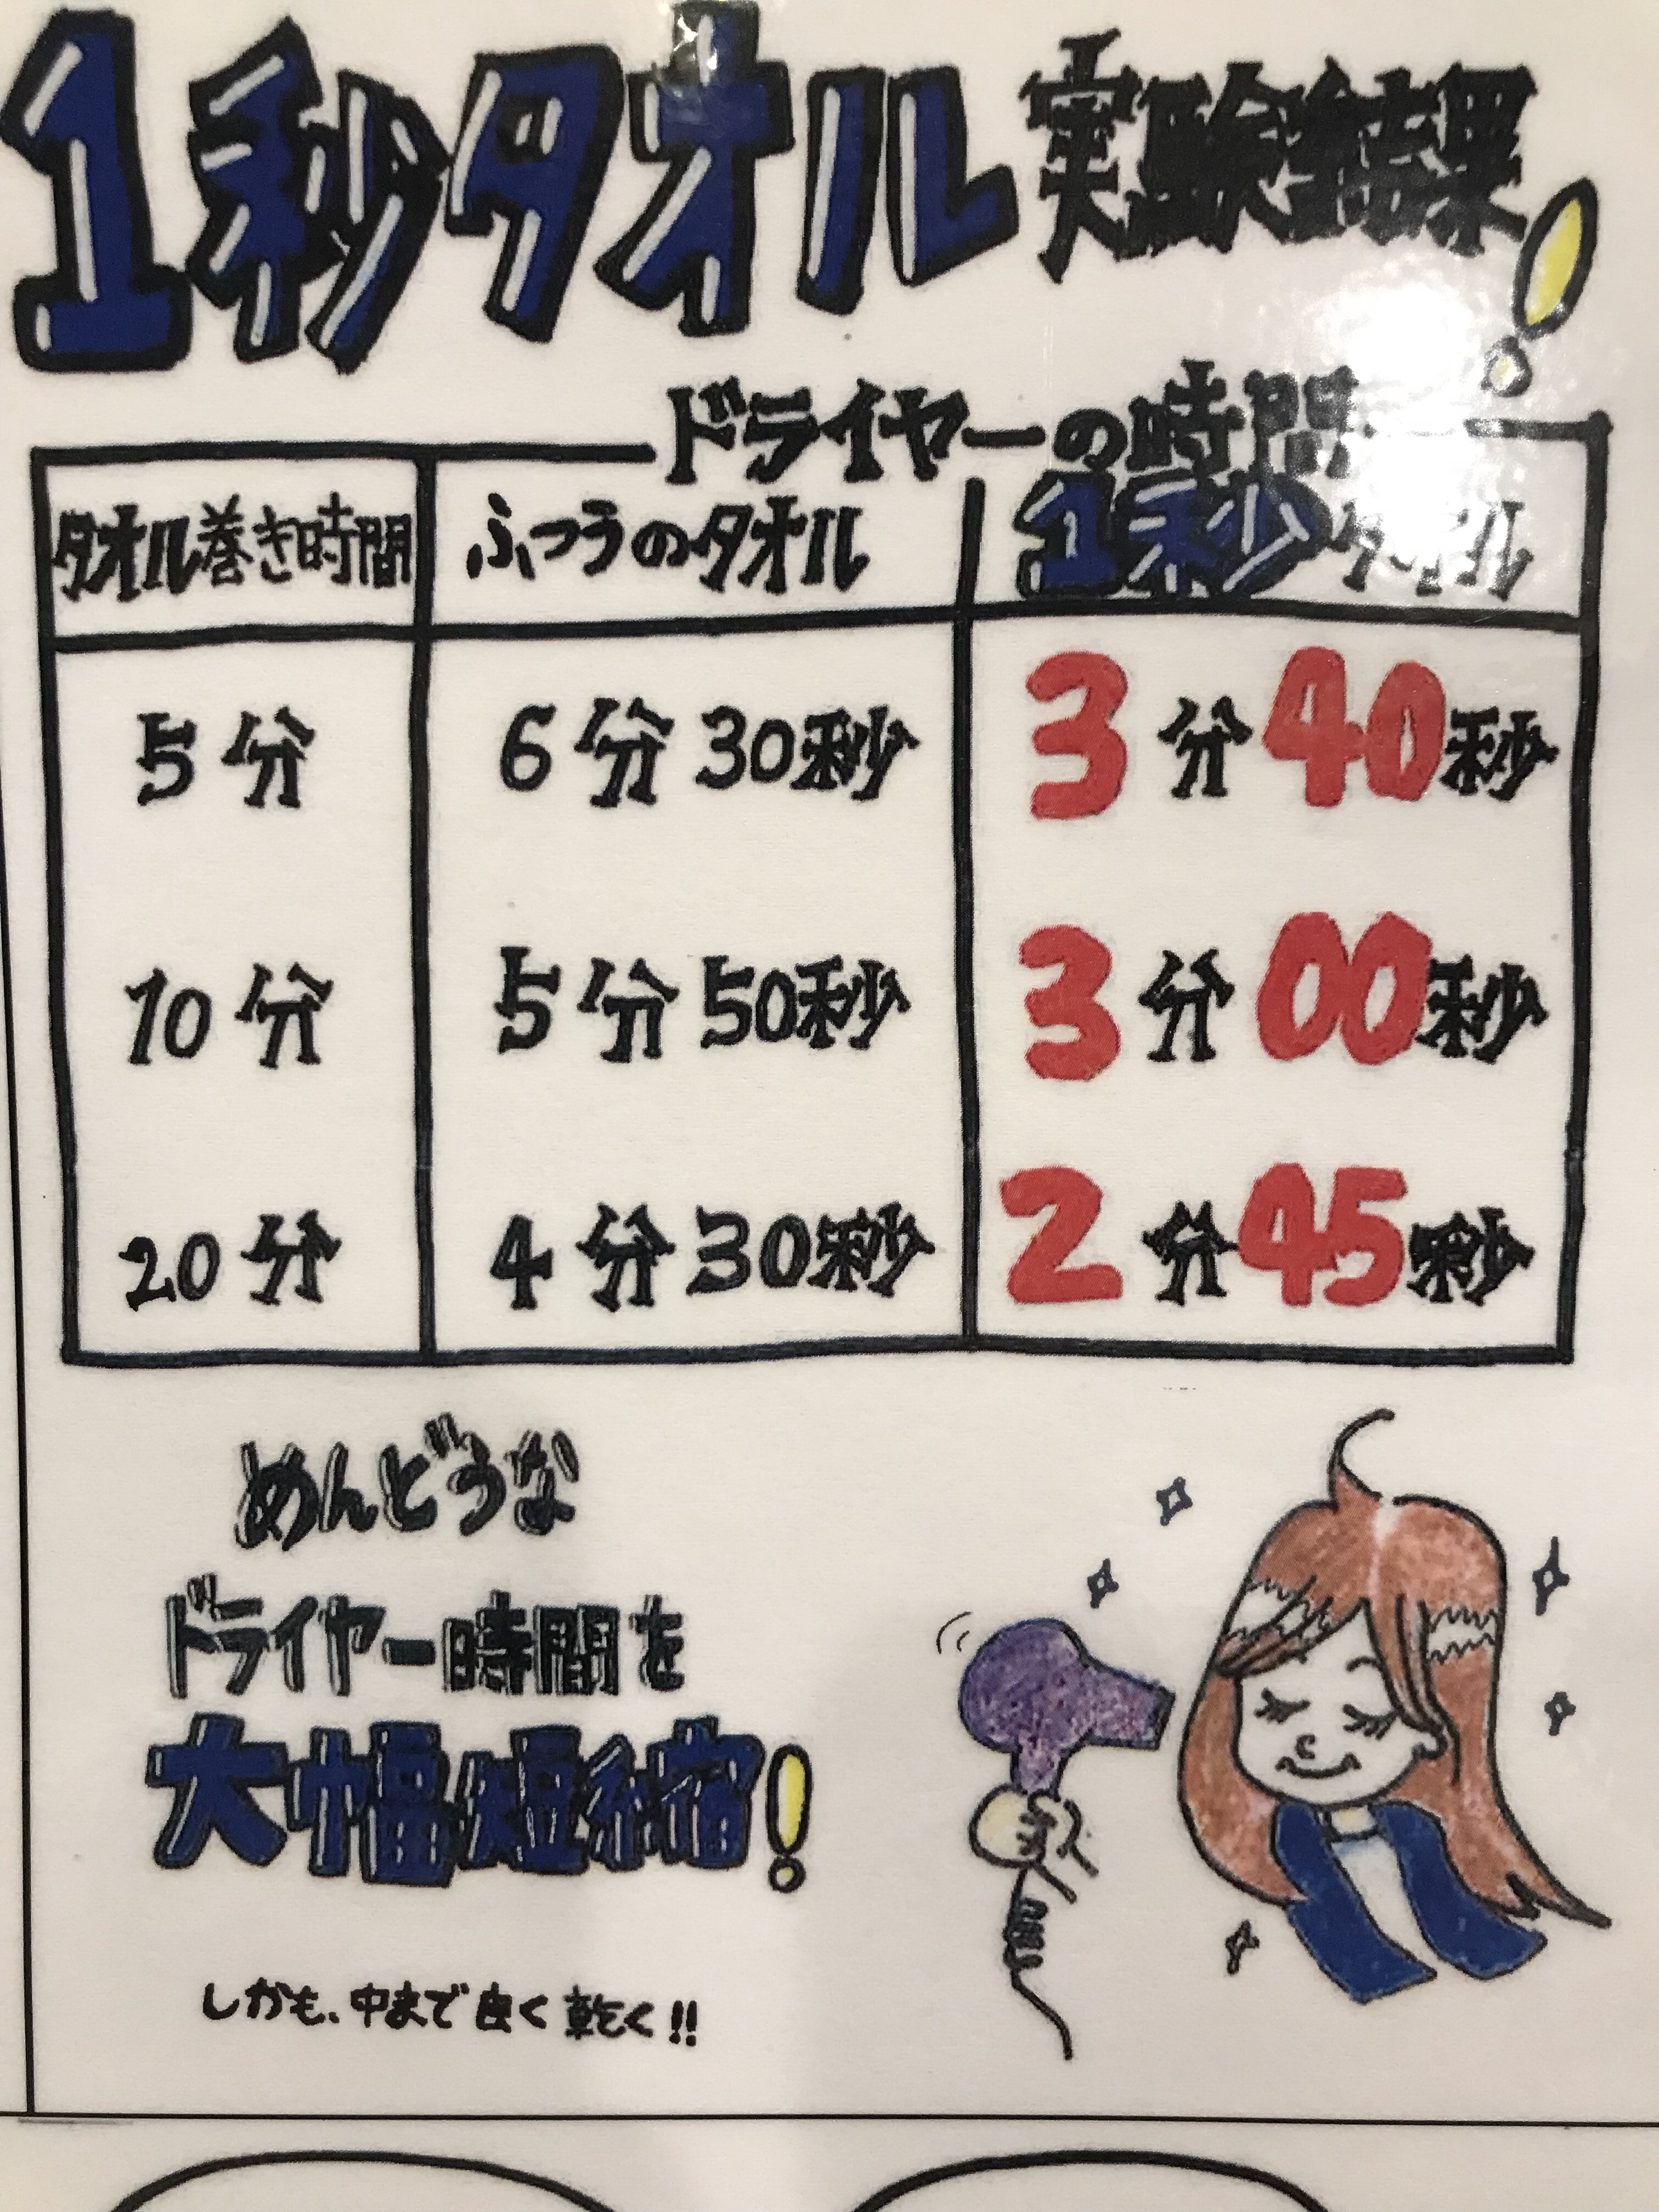 1秒タオル実験結果!
ドライヤーの時間
タオル巻き時間 ふつうのタオル 1秒タオル
5分 6分30秒 3分40秒
10分 5分50秒 3分00秒
20分 4分30秒 2分45秒
めんどうな
ドライヤー時間を
大幅短縮!
しかも、中まで良く乾く!!